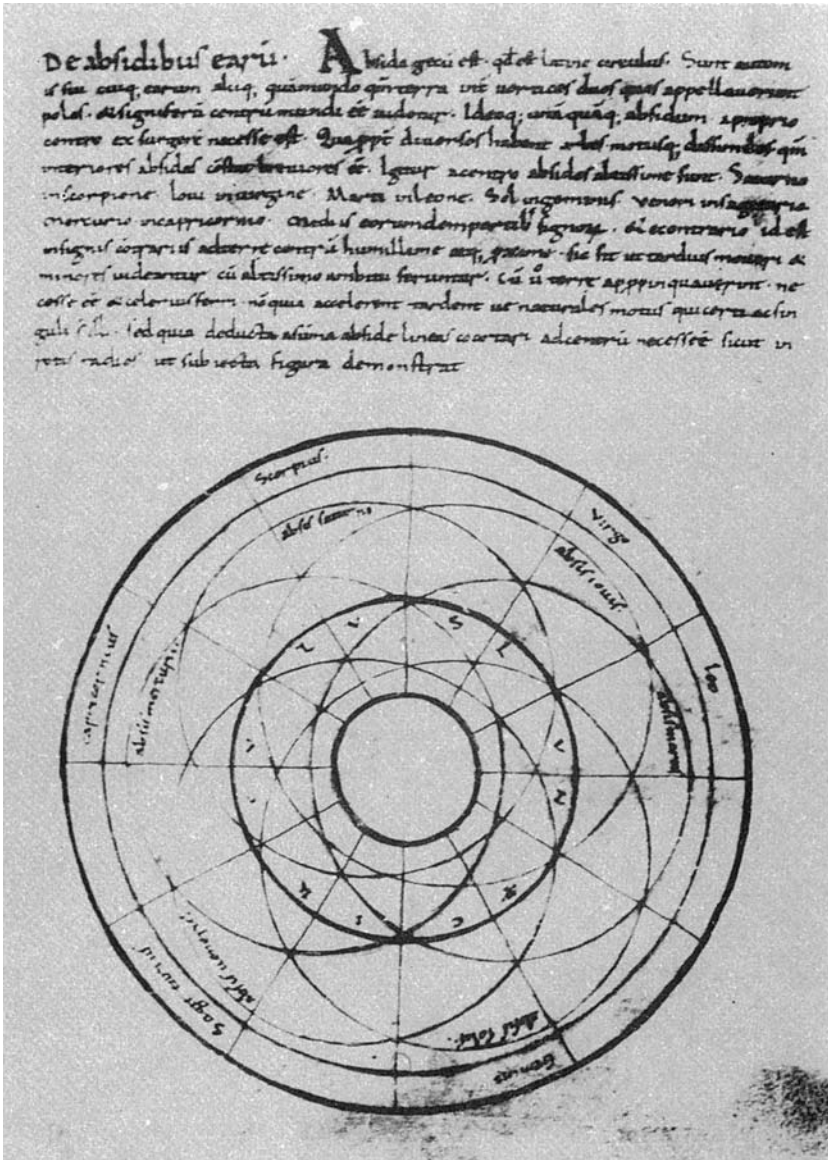 De absidibus earū. Absida grecū est. qđ est latine circulus. Sunt autem
ii sui cuiq; earum aliiq; quā mundo qm̄ terra uerticos duos quos appellauerunt
polos. signiferā centrū mundi ēē uidetur. Ideoq; unā quāq; absidum a proprio
centro exsurgere necesse est. Quappe diuersos habent orbes motusq; dissimiles qm̄
interiores absides breuiores ēē. Igitur acentro absides altissime sunt. Saturno
inscorpione. Ioui inuirgine. Marti inleone. Sol ingeminis. Veneri insagittario
mercurio incapricorno. mediis eorundem partib; signorū. & econtrario id est
adterre centrū humillime atq; proxime. sic fit ut tardius moueri &
minores uideantur cū altissimo ambitu feruntur. Cū ů terre appinquauerint. ne
cesse ēē & celerius ferri. nō quia accelerent tardent ue naturales motus qui certi ac sin
guli sed quia deducta a sūma abside lineas coartari adcentrū necesse ē sicut in
rotis radios ut subiecta figura demonstrat
Scorpius.
absis saturno
Virgo
absis iouis.
leo
absis martis
capricornius
absis mercurii
Sagittarius
absis ueneris
absis solis.
Geminis
S
L
V
N
C
I